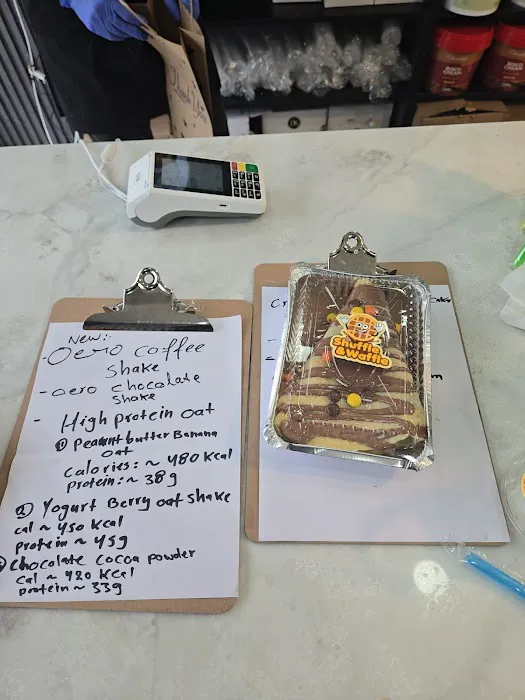 New:-
- Oero coffee
shake
- oero chocolate
shake
- High protein oat
① Peanut butter Banana
oat
calories: ~ 480 kcal
protein: ~ 38g
② Yogurt Berry oat shake
cal ~ 450 kcal
protein ~ 45g
chocolate cocoa powder
cal ~ 420 kcal
protein ~ 33g
Shuffle
& Waffle